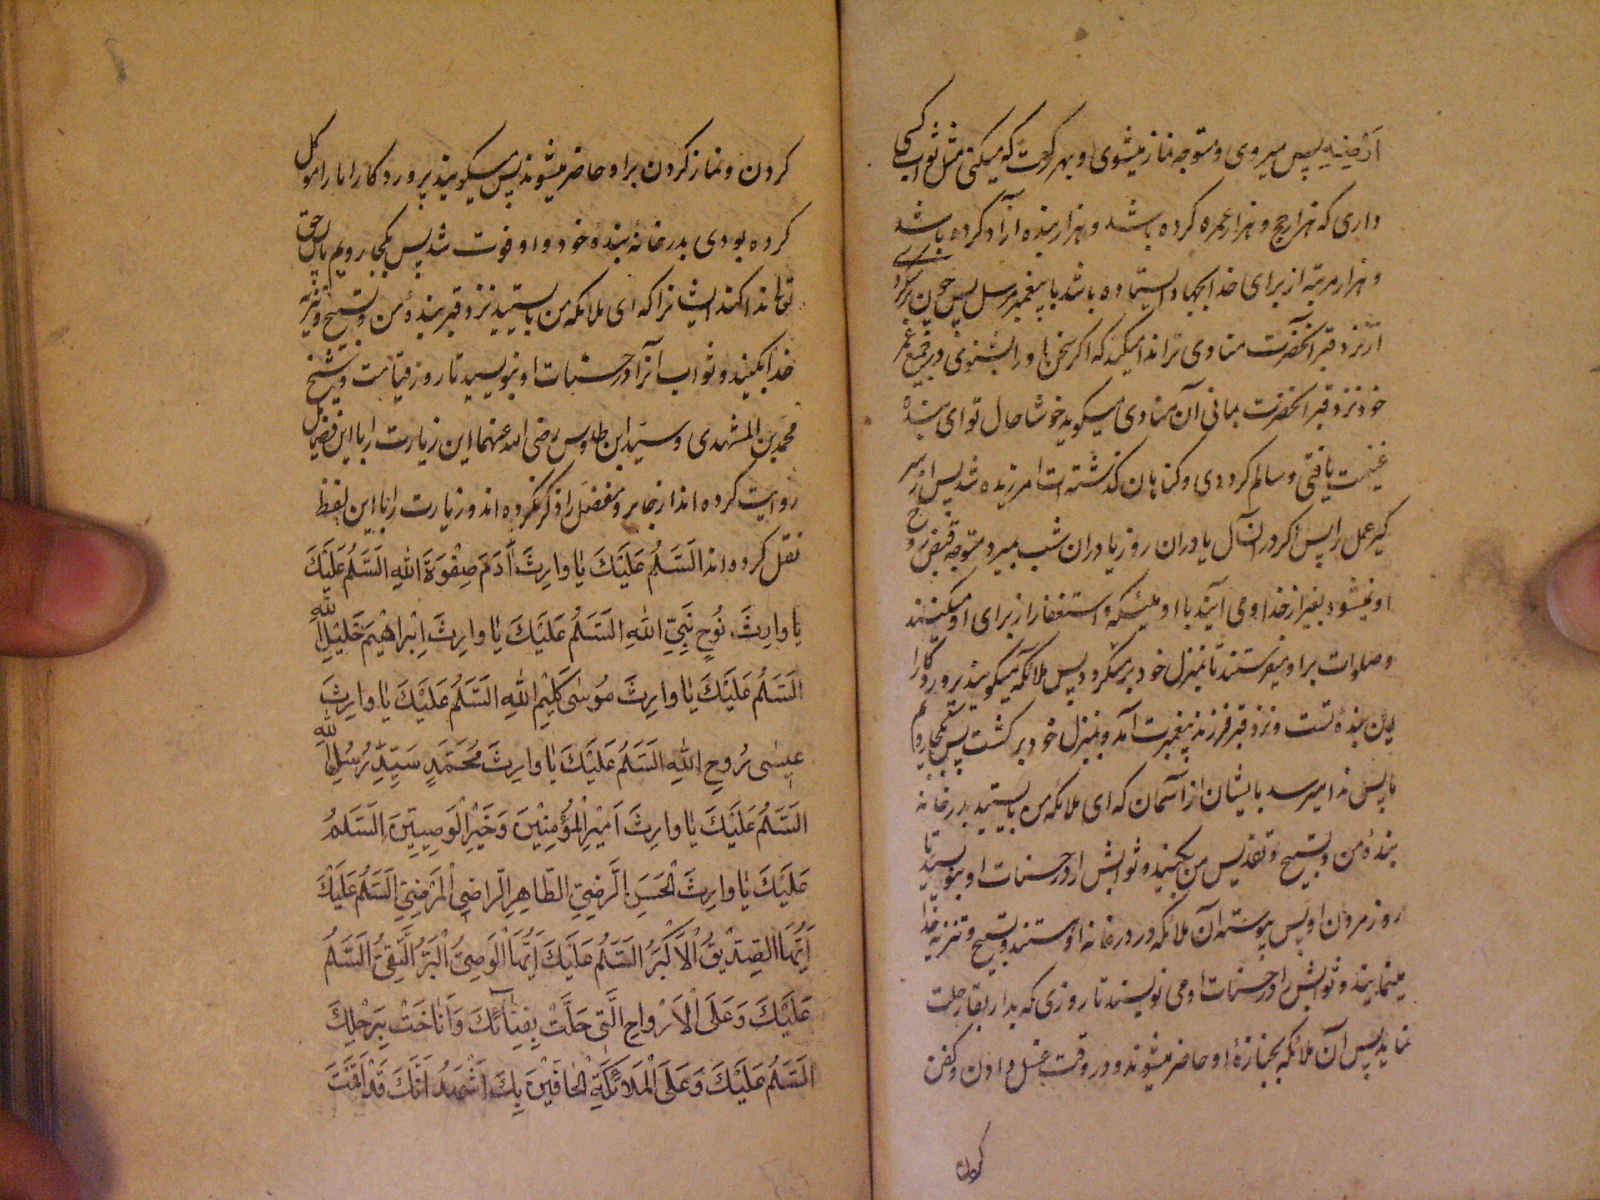 پس میروی و متوجه نماز میشوی و بهر رکعت که میکنی مثل ثواب کسی
داری که هزار حج و هزار عمره کرده باشد و هزار بنده آزاد کرده باشد
و هزار مرتبه از برای خدا بجهاد ایستاده باشد با پیغمبر مرسل پس چون برگردی
از نزد قبر آنحضرت منادی ترا ندا میکند که اگر سخن او را بشنوی در جمیع عمر
خود نزد قبر آنحضرت بمانی آن منادی میکوید خوشا حال تو ای بنده
غنیمت یافتی و سالم کردیدی و کناهان کذشته‌ات امرزیده شد پس از سر
کیر عمل را پس اکر در آن سال یا در ان روز یا در ان شب بمیرد متوجه قبض روح
او نمیشود بغیر از خدا و می آیند با او ملئکه و استغفار از برای او میکنند
و صلوات بر او میفرستند تا بمنزل خود برمیکردد پس ملائکه میکویند پروردکارا
این بنده تست و نزد قبر فرزند پیغمبرت آمد و بمنزل خود برکشت پس بکجا رویم
ما پس ندا میرسد بایشان از آسمان که ای ملائکه من بایستید بدر خانه
بنده من و تسبیح و تقدیس من بکنید و ثوابش را در حسنات او بنویسید تا
روز مردن او پس پیوسته آن ملائکه در در خانه او هستند و تسبیح و تنزیه خدا
مینمایند و ثوابش را در حسنات او می نویسند تا روزی که بدار بقا رحلت
نماید پس آن ملائکه بجنازهٔ او حاضر میشوند و در وقت غسل دادن و کفن
کردن
کردن و نماز کردن بر او حاضر میشوند پس میکویند پروردکارا ما را موکل
کرده بودی بدر خانهٔ بندهٔ خود و او فوت شد پس بکجا رویم ما پس حق
تعالی ندا کند ایشانرا که ای ملائکه من بایستید نزد قبر بندهٔ من و تسبیح و تنزیه
خدا بکنید و ثواب آنرا در حسنات او بنویسید تا روز قیامت و شیخ
محمد بن المشهدی و سید ابن طاوس رضی الله عنهما این زیارت را با این فضیلت
روایت کرده اند از جابر و مفضل را ذکر نکرده اند و زیارت را با این لفظ
نقل کرده اند اَلسَّلامُ عَلَیْكَ یا وارِثَ آدَمَ صِفْوَةَ اللهِ اَلسَّلامُ عَلَیْكَ
یا وارِثَ نُوحٍ نَبِیِّ اللهِ اَلسَّلامُ عَلَیْكَ یا وارِثَ اِبْراهیمَ خَلیلِ اللهِ
اَلسَّلامُ عَلَیْكَ یا وارِثَ مُوسی کَلیمِ اللهِ اَلسَّلامُ عَلَیْكَ یا وارِثَ
عیسٰی رُوحِ اللهِ اَلسَّلامُ عَلَیْكَ یا وارِثَ مُحَمَّدٍ سَیِّدِ رُسُلِ اللهِ
اَلسَّلامُ عَلَیْكَ یا وارِثَ اَمیرِ الْمُؤْمِنینَ وَ خَیْرِ الْوَصِیّینَ اَلسَّلامُ
عَلَیْكَ یا وارِثَ الْحَسَنِ الرَّضِیِّ الطّاهِرِ الرّاضِی الْمَرْضِیِّ اَلسَّلامُ عَلَیْكَ
اَیُّهَا الصِّدّیقُ الْاَکْبَرُ اَلسَّلامُ عَلَیْكَ اَیُّهَا الْوَصِیُّ الْبَرُّ التَّقِیُّ اَلسَّلامُ
عَلَیْكَ وَ عَلَی الْاَرْواحِ الَّتی حَلَّتْ بِفِنائِكَ وَ اَناخَتْ بِرَحْلِكَ
اَلسَّلامُ عَلَیْكَ وَ عَلَی الْمَلائِکَةِ الْحافّینَ بِكَ اَشْهَدُ اَنَّكَ قَدْ اَقَمْتَ